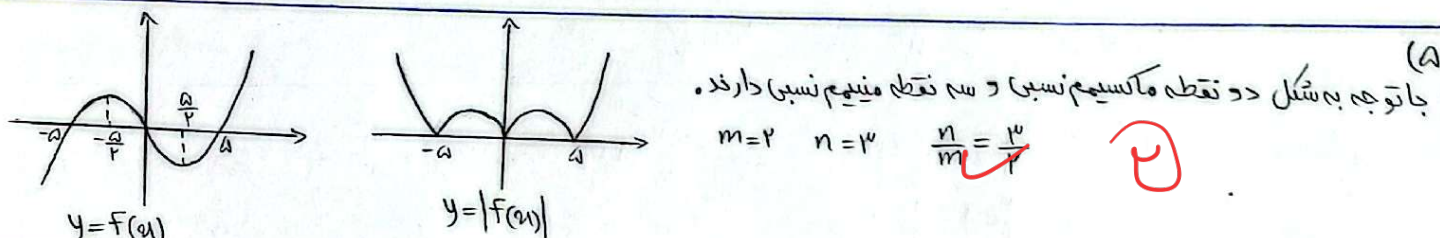 ۵)
با توجه به شکل دو نقطه ماکسیمم نسبی و سه نقطه مینیمم نسبی دارند.
m=۲ n=۳ n/m = ۳/۲
۲
-۵ -۵/۲ ۵/۲ ۵
y=f(x)
-۵ ۵
y=|f(x)|